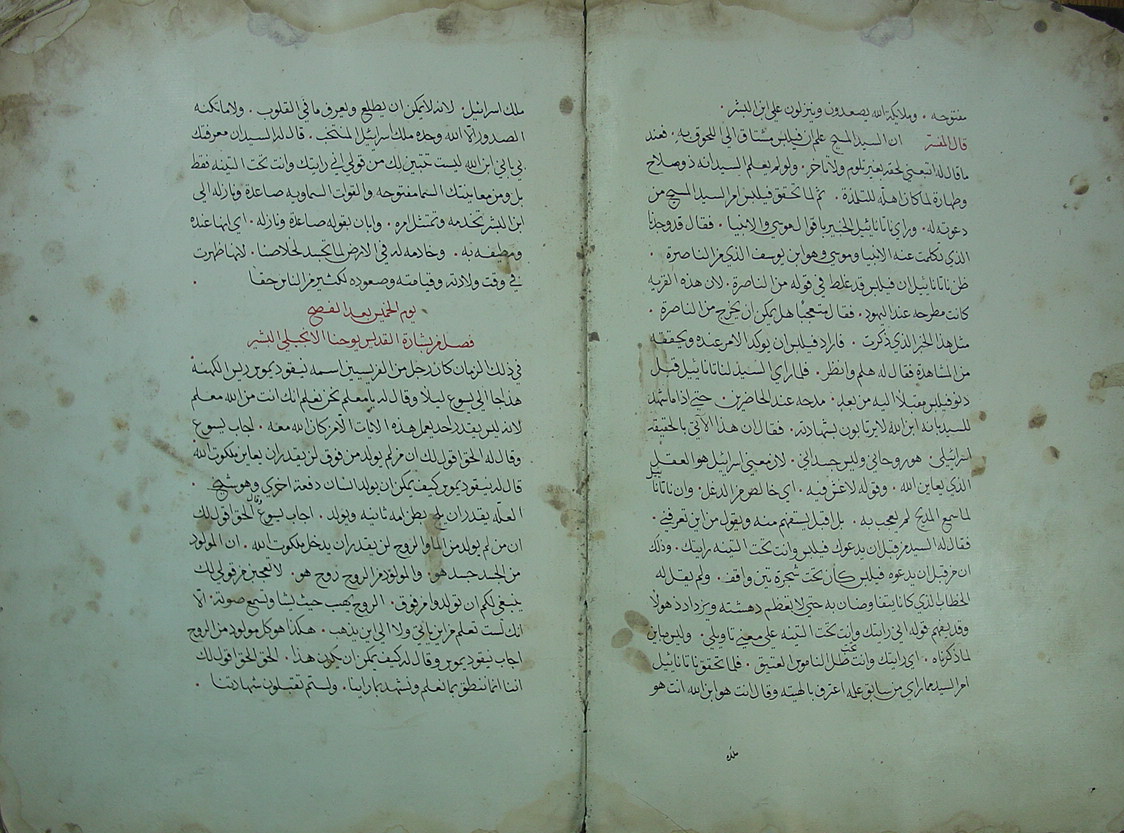 مفتوحه . وملايكة الله يصعدون وينزلون على ابن البشر .
قال المفسر ان السيد المسيح علم ان فيلبس مشتاق الى اللحوق به . فعند
ما قال له اتبعني لحقه بغير تلوم ولا تاخر . ولو لم يعلم السيد انه ذو صلاح
وطهارة لما كان اهله للتلمذة . ثم لما تحقق فيلبس امر السيد المسيح من
دعوته له . وراي ناتانائيل الخبير باقوال موسي والانبيا . فقال قد وجدنا
الذي تكلمت عنه الانبيا وموسي وهو ابن يوسف الذي من الناصرة .
ظن ناتانائيل ان فيلبس قد غلط في قوله من الناصرة . لان هذه القريه
كانت مطرحه عند اليهود . فقال متعجبا هل يمكن ان يخرج من الناصرة .
مثل هذا الخير الذي ذكرت . فاراد فيلبس ان يوكد الامر عنده ويحققه
من المشاهدة فقال له هلم وانظر . فلما راي السيد لناتانائيل قبل
دنو فيلبس مقبلا اليه من بعد . مدحه عند الحاضرين . حتي اذا ما شهد
للسيد بانه ابن الله لا يرتابون بشهادته . فقال ان هذا الآتي بالحقيقه
اسرائيلي . هو روحاني وليس جسداني . لان معني اسرائيل هو العقل
الذي يعاين الله . وقوله لا غش فيه . اي خالص من الدغل . وان ناتانا
لما سمع المديح لم يعجب به . بل اقبل يستفهم منه ويقول من اين تعرفني .
فقال له السيد من قبل ان يدعوك فيلبس وانت تحت التينه رايتك . وذلك
ان من قبل ان يدعوه فيلبس كان تحت شجرة تين واقف . ولم يقل له
الخطاب الذي كانا بها وصفان به حتي لا تعظم دهشته ويزداد ذهولا
وقد يفهم قوله اني رايتك وانت تحت التينه علي معني تاويلي . وليس يباين
لما ذكرناه . اي رايتك وانت تحت ظل الناموس العتيق . فلما تحقق ناتانائيل
امر السيد مما راي من سابق علمه اعترف بالهيته وقال انت هو ابن الله انت هو
ملك
ملك اسرائيل . لانه لا يمكن ان يطلع ويعرف ما في القلوب . ولا ما تكنه
الصدور الا الله وحده ملك اسرائيل المنتخب . قال له السيد ان معرفتك
بي باني ابن الله ليست تحقيق لك من قولي اني رايتك وانت تحت التينه فقط
بل ومن معاينتك السما مفتوحه والقوات السماويه صاعدة ونازله الي
ابن البشر تخدمه وتمتثل امره . وابان بقوله صاعدة ونازله . اي انها عنده
ومطيفه به . وخادمه له في الارض لما تجسد لخلاصنا . لانها ظهرت
في وقت ولادته وقيامته وصعوده لكثير من الناس حقا .
يوم الخميس بعد الفصح
فصل من بشارة القديس يوحنا الانجيلي البشير
في ذلك الزمان كان رجل من الفريسيين اسمه نيقوديموس رئيس للكهنه
هذا جا الي يسوع ليلا وقال له يا معلم نحن نعلم انك انت من الله معلم
لانه ليس يقدر احد يعمل هذه الايات الا من كان الله معه . اجاب يسوع
وقال له الحق اقول لك ان من لم يولد من فوق لن يقدر ان يعاين ملكوت الله
قال له نيقوديموس كيف يمكن ان يولد انسان دفعة اخري وهو شيخ .
العله يقدر ان يلج بطن امه ثانيه ويولد . اجاب يسوع وقال الحق اقول لك
ان من لم يولد من الما والروح لن يقدر ان يدخل ملكوت الله . ان المولود
من الجسد جسد هو . والمولود من الروح روح هو . لا تعجبن من قولي لك
ينبغي لكم ان تولدوا من فوق . الروح يهب حيث يشا وتسمع صوته . الا
انك لست تعلم من اين ياتي ولا الي اين يذهب . هكذا هو كل مولود من الروح
اجاب نيقوديموس وقال له كيف يمكن ان يكون هذا . الحق الحق اقول لك
اننا انما ننطق بما نعلم ونشهد بما راينا . ولستم تقبلون شهادتنا .